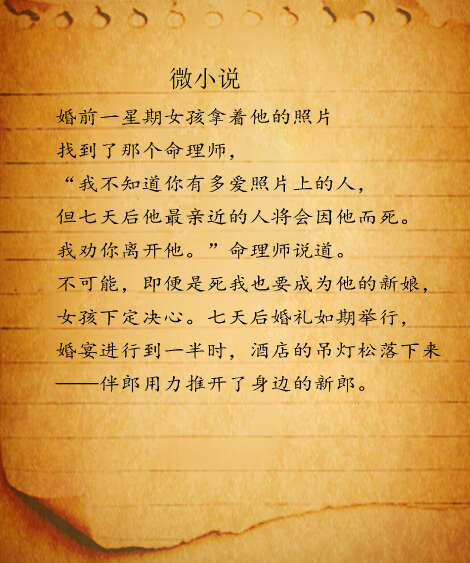 微小说
婚前一星期女孩拿着他的照片
找到了那个命理师，
“我不知道你有多爱照片上的人，
但七天后他最亲近的人将会因他而死。
我劝你离开他。”命理师说道。
不可能，即便是死我也要成为他的新娘，
女孩下定决心。七天后婚礼如期举行，
婚宴进行到一半时，酒店的吊灯松落下来
——伴郎用力推开了身边的新郎。